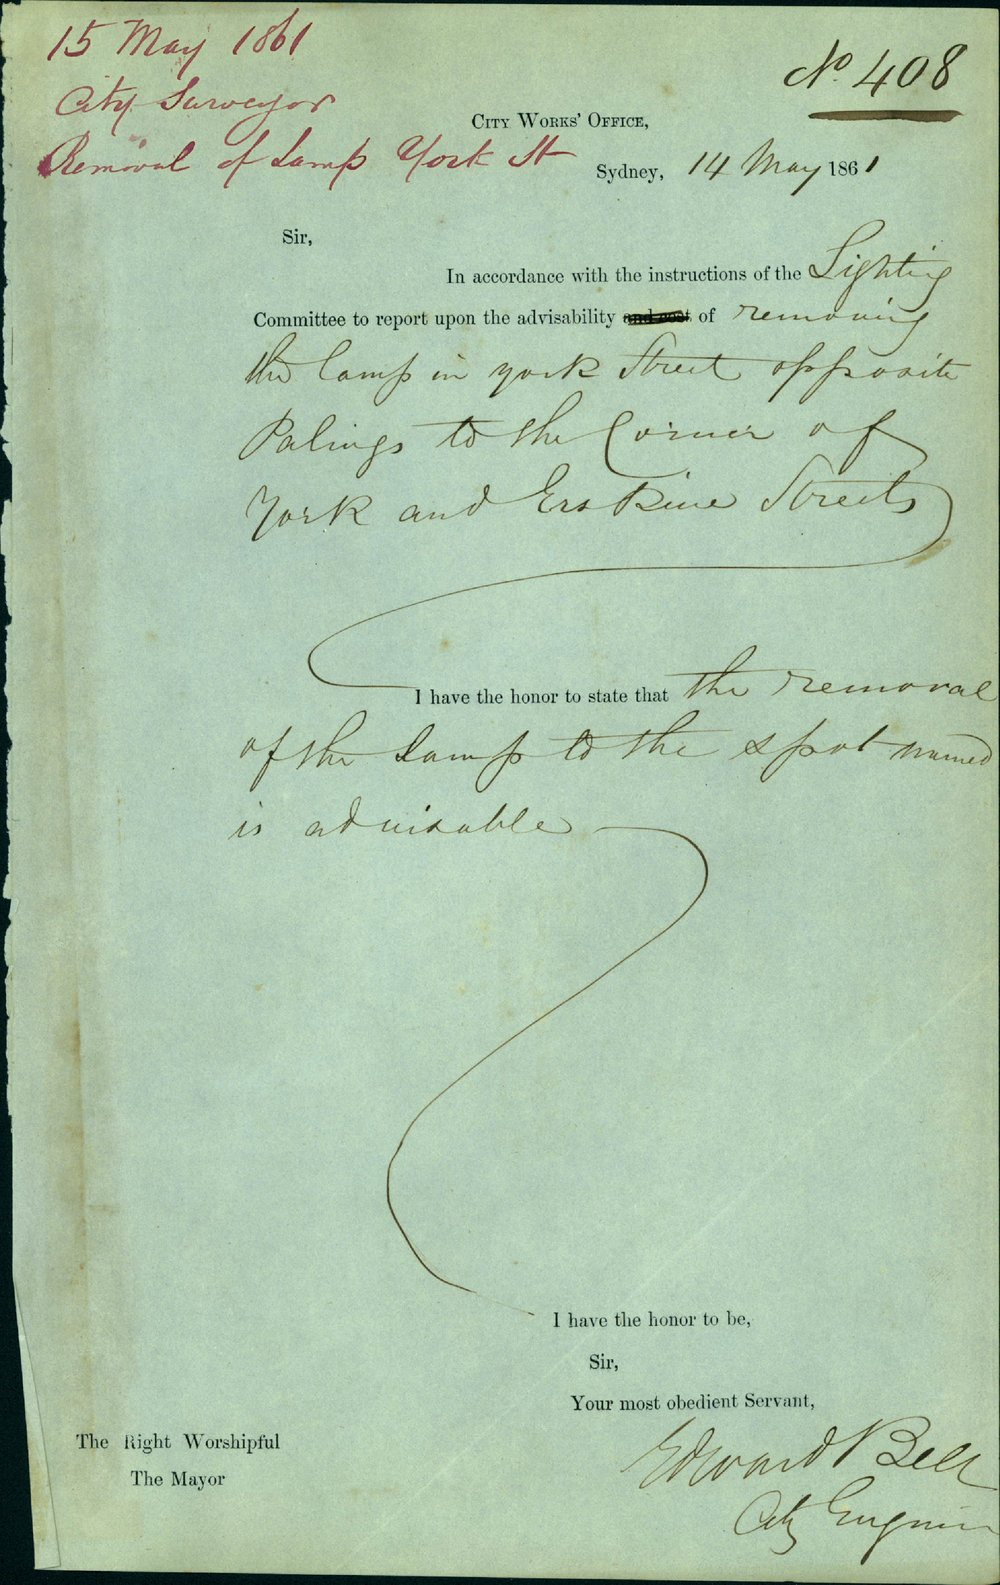 15 May 1861
City Surveyor
Removal of Lamp York St
No 408
City Works' Office,
Sydney, 14 May 1861
Sir,
In accordance with the instructions of the Lighting
Committee to report upon the advisability and cost of removing
the lamp in York Street opposite
Palings to the Corner of
York and Erskine Streets
I have the honor to state that the removal
of the Lamp to the spot named
is advisable
I have the honor to be,
Sir,
Your most obedient Servant,
Edward Bell
City Engineer
The Right Worshipful
The Mayor